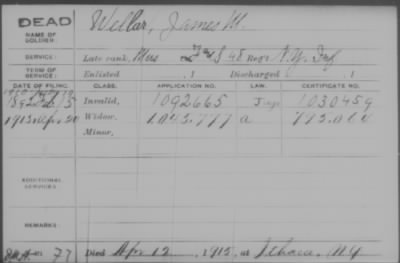 DEAD
NAME OF SOLDIER: Wellar, James M.
SERVICE: Late rank, Mus F & S 48 Reg't N.Y. Inf
TERM OF SERVICE: Enlisted , 1 Discharged , 1
DATE OF FILING. CLASS. APPLICATION NO. LAW. CERTIFICATE NO.
Invalid, 1092665 1030459
1915 Apr 20 Widow, 1045.777 a
Minor,
ADDITIONAL SERVICES:
REMARKS:
77 Died Apr 12, 1915, at Ithaca, N.Y.